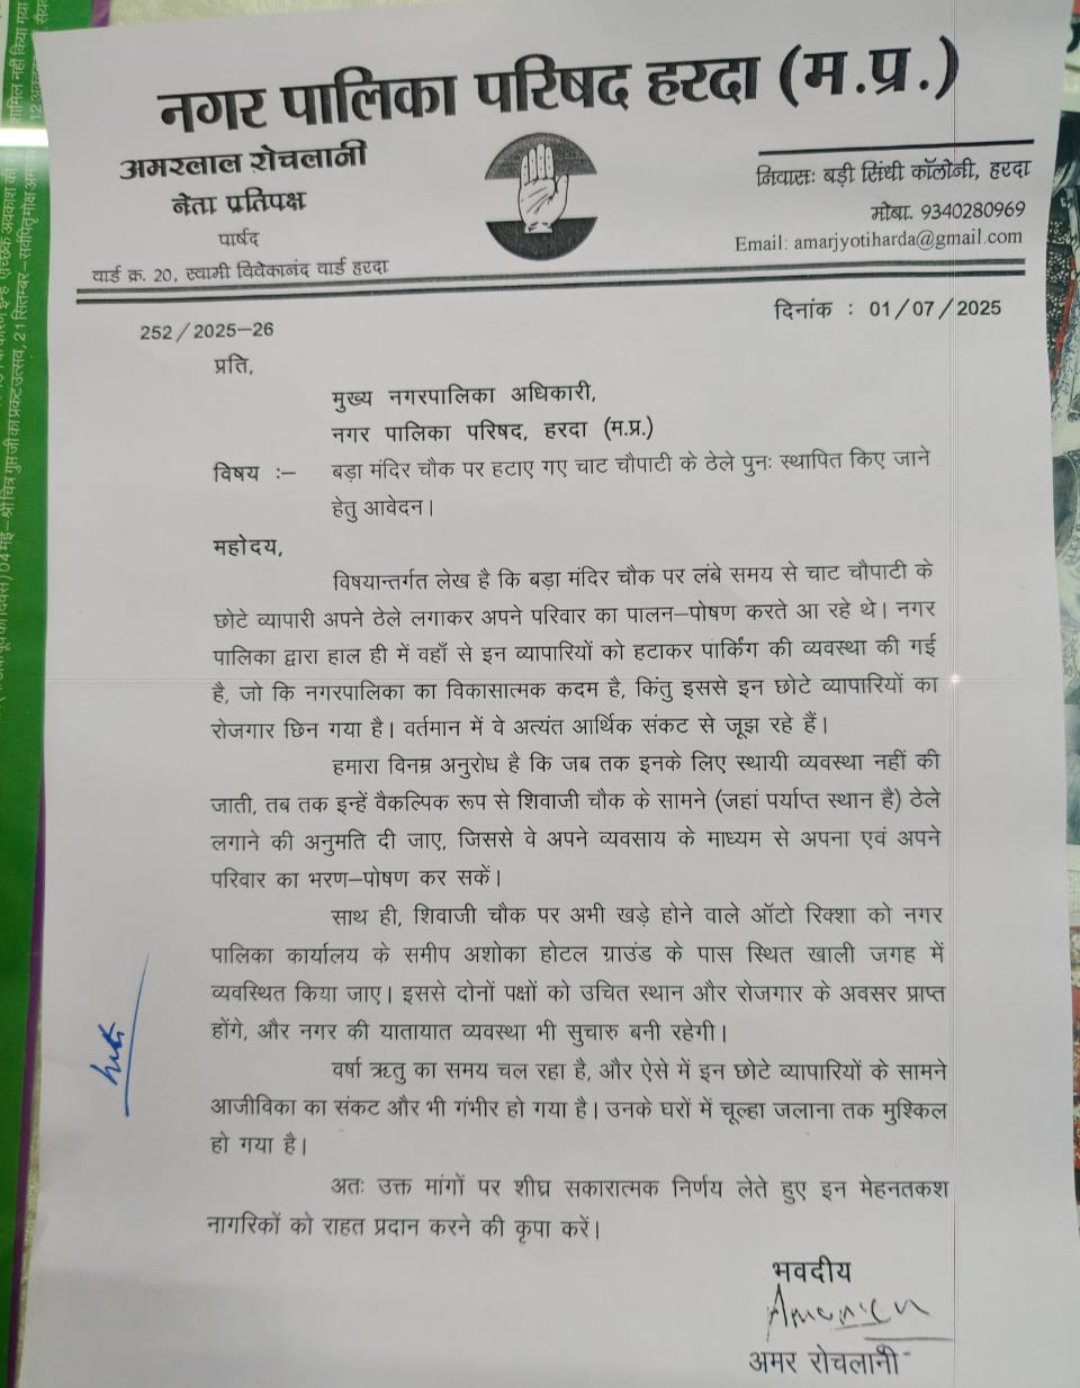 नगर पालिका परिषद हरदा (म.प्र.)
अमरलाल रोचलानी
नेता प्रतिपक्ष
पार्षद
वार्ड क्र. 20, स्वामी विवेकानंद वार्ड हरदा
निवासः बड़ी सिंधी कॉलोनी, हरदा
मोबा. 9340280969
Email: amarjyotiharda@gmail.com
दिनांक : 01/07/2025
252/2025–26
प्रति,
मुख्य नगरपालिका अधिकारी,
नगर पालिका परिषद, हरदा (म.प्र.)
विषय :– बड़ा मंदिर चौक पर हटाए गए चाट चौपाटी के ठेले पुनः स्थापित किए जाने
हेतु आवेदन।
महोदय,
विषयान्तर्गत लेख है कि बड़ा मंदिर चौक पर लंबे समय से चाट चौपाटी के
छोटे व्यापारी अपने ठेले लगाकर अपने परिवार का पालन–पोषण करते आ रहे थे। नगर
पालिका द्वारा हाल ही में वहाँ से इन व्यापारियों को हटाकर पार्किंग की व्यवस्था की गई
है, जो कि नगरपालिका का विकासात्मक कदम है, किंतु इससे इन छोटे व्यापारियों का
रोजगार छिन गया है। वर्तमान में वे अत्यंत आर्थिक संकट से जूझ रहे हैं।
हमारा विनम्र अनुरोध है कि जब तक इनके लिए स्थायी व्यवस्था नहीं की
जाती, तब तक इन्हें वैकल्पिक रूप से शिवाजी चौक के सामने (जहां पर्याप्त स्थान है) ठेले
लगाने की अनुमति दी जाए, जिससे वे अपने व्यवसाय के माध्यम से अपना एवं अपने
परिवार का भरण–पोषण कर सकें।
साथ ही, शिवाजी चौक पर अभी खड़े होने वाले ऑटो रिक्शा को नगर
पालिका कार्यालय के समीप अशोका होटल ग्राउंड के पास स्थित खाली जगह में
व्यवस्थित किया जाए। इससे दोनों पक्षों को उचित स्थान और रोजगार के अवसर प्राप्त
होंगे, और नगर की यातायात व्यवस्था भी सुचारु बनी रहेगी।
वर्षा ऋतु का समय चल रहा है, और ऐसे में इन छोटे व्यापारियों के सामने
आजीविका का संकट और भी गंभीर हो गया है। उनके घरों में चूल्हा जलाना तक मुश्किल
हो गया है।
अतः उक्त मांगों पर शीघ्र सकारात्मक निर्णय लेते हुए इन मेहनतकश
नागरिकों को राहत प्रदान करने की कृपा करें।
भवदीय
अमर रोचलानी